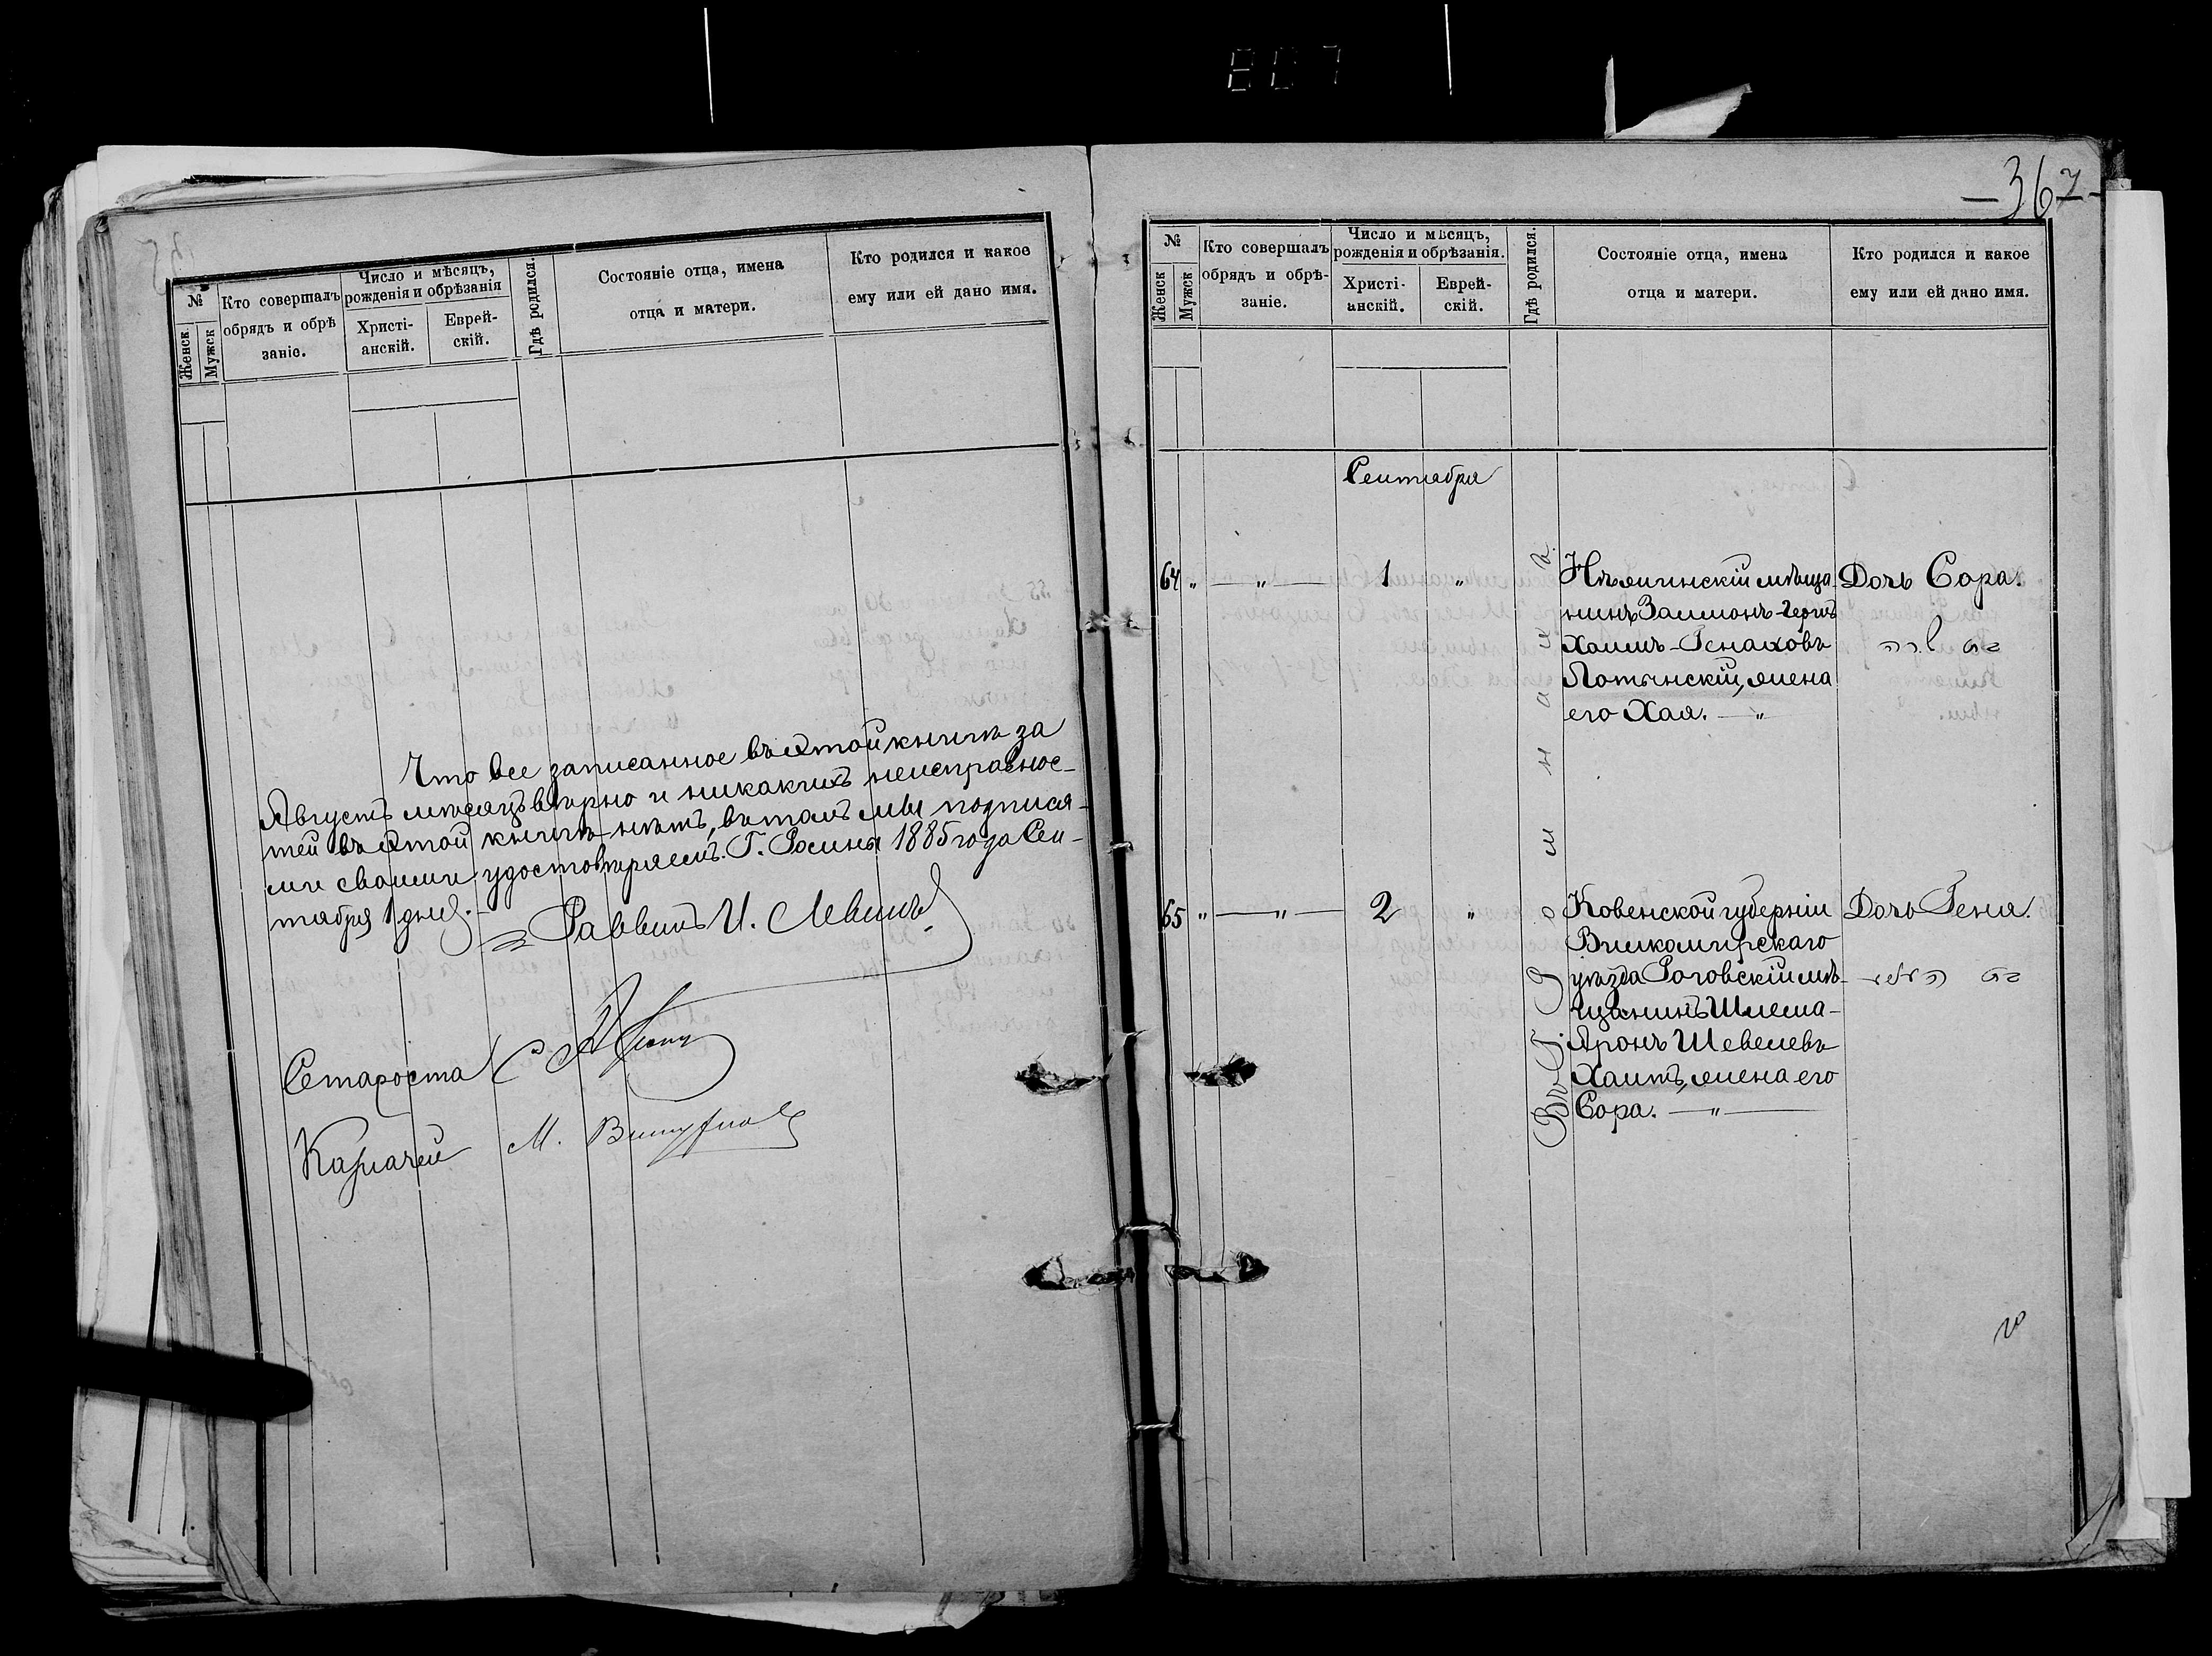 807
№
Женск
Мужск
Кто совершалъ
обрядъ и обрѣ
заніе.
Число и мѣсяцъ,
рожденія и обрѣзанія
Христі-
анскій.
Еврей-
скій.
Гдѣ родился.
Состояніе отца, имена
отца и матери.
Кто родился и какое
ему или ей дано имя.
Что все записанное въ этой книгѣ за
Августъ мѣсяцъ вѣрно и никакихъ неисправнос-
тей въ этой книгѣ нѣтъ, въ томъ мы подпися-
ми своими удостовѣряемъ. Г. Ромны 1885 года Сен-
тября 1 дня.
Раввинъ И. Левинъ
Староста
Казначей М.
-367-
№
Женск
Мужск
Кто совершалъ
обрядъ и обрѣ-
заніе.
Число и мѣсяцъ,
рожденія и обрѣзанія.
Христі-
анскій.
Еврей-
скій.
Гдѣ родился.
Состояніе отца, имена
отца и матери.
Кто родился и какое
ему или ей дано имя.
Сентября
64 " — " — 1 "
Нѣжинскій мѣща-
нинъ Залмонъ-Герцъ
Хаимъ-Генаховъ
Лотынскій, жена
его Хая. — "
Дочь Сора.
בת שרה
65 " — " — 2 "
Ковенской губерніи
Вилкомирскаго
уѣзда Роговскій мѣ-
щанинъ Шлема-
Аронъ Шевелевъ
Хаитъ, жена его
Сора. — " —
Дочь Геня.
Въ Г.